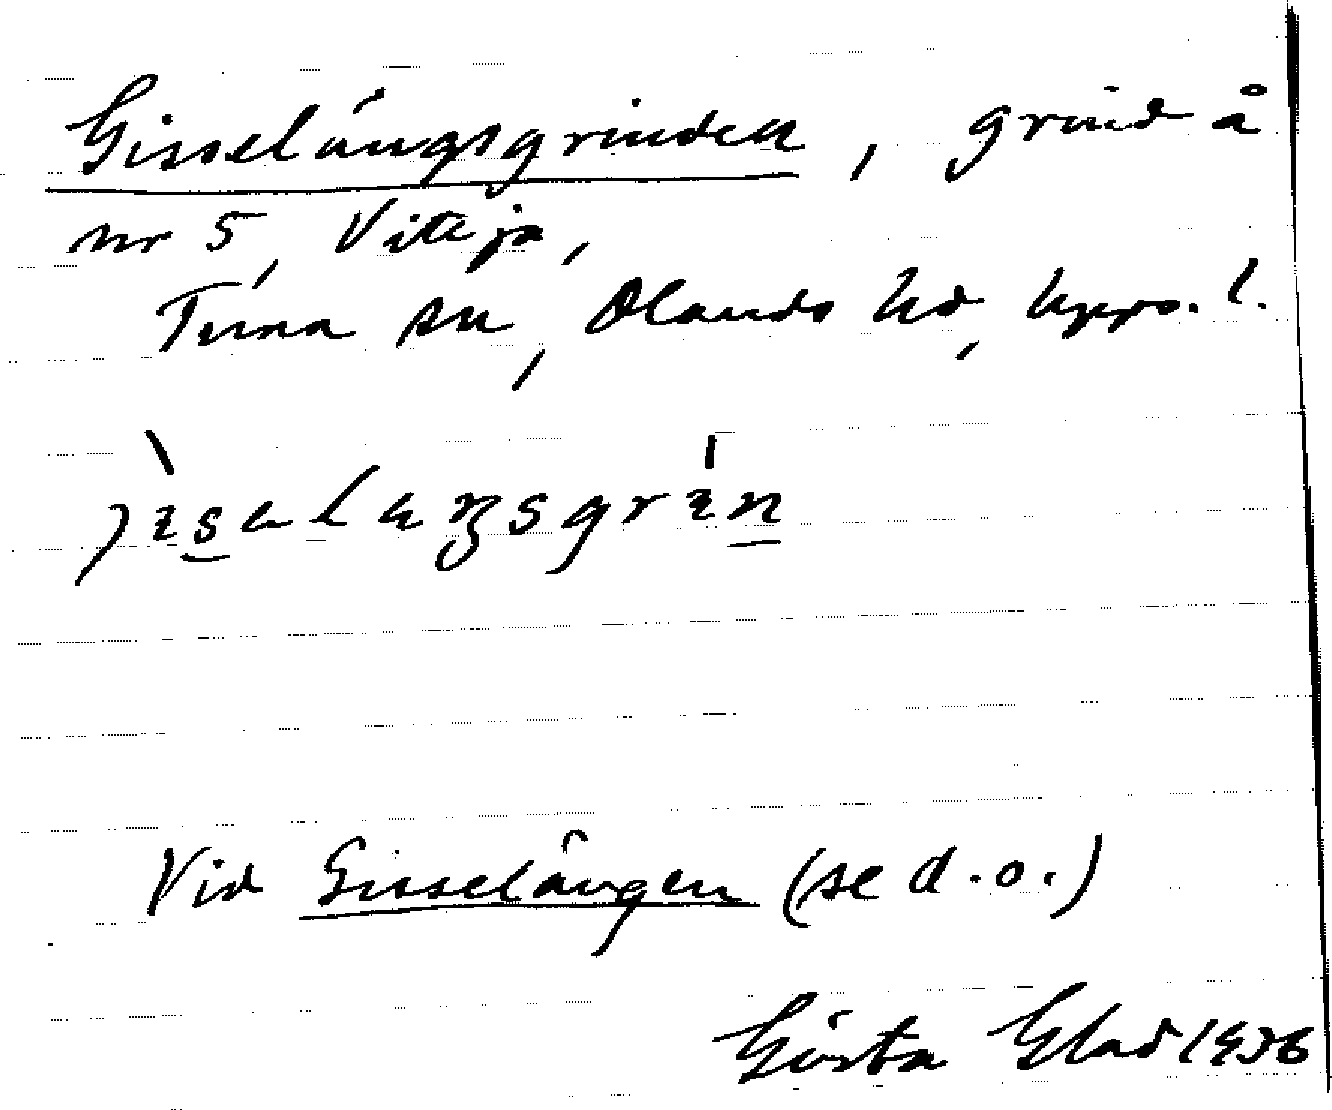 Gisselängsgrinden, grind å
nr 5, Viteja,
Tuna sn, Olands hd, Upps. l.
Vid Gisselängen (se d.o.)
Gösta Glad 1936